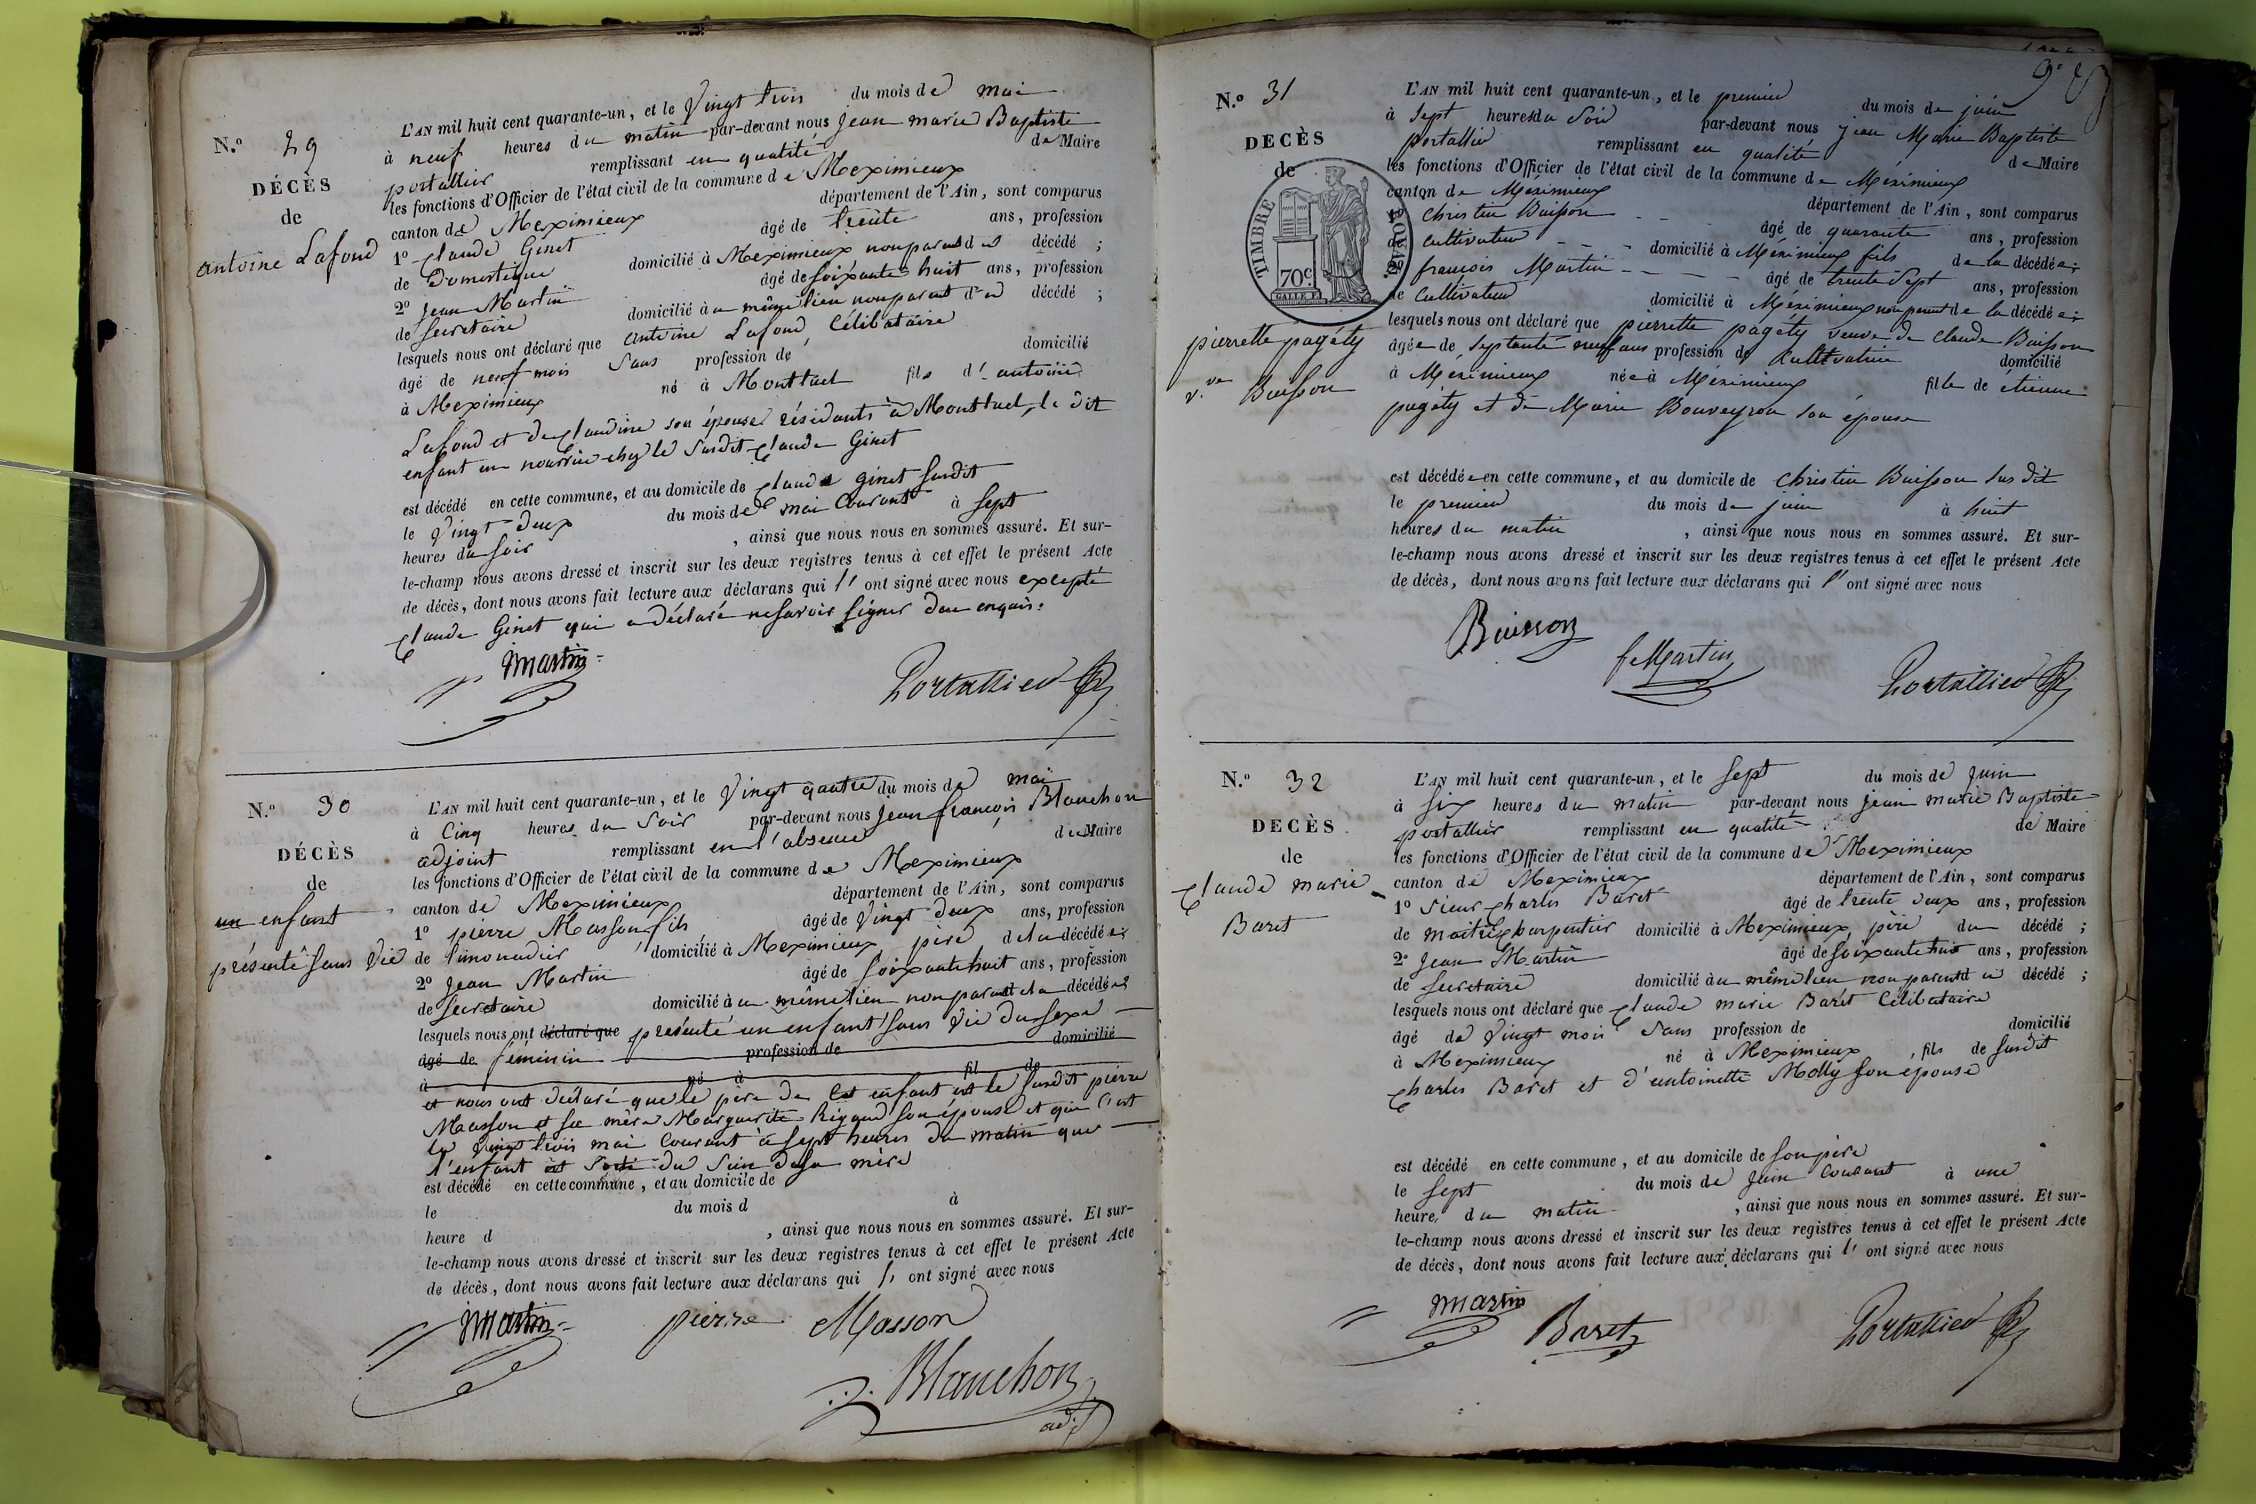 N.º 29
DÉCÈS
de
antoine Lafond
L'AN mil huit cent quarante-un, et le Vingt trois du mois de mai
à neuf heures du matin par-devant nous jean marie Baptiste
portallier remplissant en qualité de Maire
les fonctions d'Officier de l'état civil de la commune de Meximieux
canton de Meximieux département de l'Ain, sont comparus
1º Claude Ginet âgé de trente ans, profession
de Domestique domicilié à Meximieux non parent du décédé ;
2º Jean Martin âgé de soixante huit ans, profession
de secretaire domicilié au même lieu non parent du décédé ;
lesquels nous ont déclaré que antoine Lafond Célibataire
âgé de neuf mois sans profession de domicilié
à Meximieux né à Montluel fils d'antoine
Lafond et de Claudine son épouse résidants à Montluel, le dit
enfant en nourrice chez le susdit Claude Ginet
est décédé en cette commune, et au domicile de Claude ginet susdit
le vingt deux du mois de mai Courant à sept
heures du soir , ainsi que nous nous en sommes assuré. Et sur-
le-champ nous avons dressé et inscrit sur les deux registres tenus à cet effet le présent Acte
de décès, dont nous avons fait lecture aux déclarans qui l'ont signé avec nous excepté
Claude Ginet qui a déclaré ne savoir signer de ce enquis.
Martin
Portallier
N.º 30
DÉCÈS
de
un enfant
présenté sans Vie
L'AN mil huit cent quarante-un, et le Vingt quatre du mois de mai
à Cinq heures du soir par-devant nous Jean françois Blanchon
adjoint remplissant en l'absence du Maire
les fonctions d'Officier de l'état civil de la commune de Meximieux
canton de Meximieux département de l'Ain, sont comparus
1º pierre Masson fils âgé de Vingt deux ans, profession
de limonadier domicilié à Meximieux père de la décédée ;
2º Jean Martin âgé de soixante huit ans, profession
de secretaire domicilié au même lieu non parent de la décédée
lesquels nous ont déclaré que présenté un enfant sans Vie du sexe
âgé de féminin profession de domicilié
à né à fil de
et nous ont déclaré que le père de Cet enfant est le susdit pierre
Masson et sa mère Marguerite Rigaud son épouse et que C'est
le vingt trois mai Courant à sept heures du matin que
l'enfant est sorti du sein de sa mère
est décédé en cette commune, et au domicile de
le du mois d à
heure d , ainsi que nous nous en sommes assuré. Et sur-
le-champ nous avons dressé et inscrit sur les deux registres tenus à cet effet le présent Acte
de décès, dont nous avons fait lecture aux déclarans qui l'ont signé avec nous
Martin pierre Masson
Blanchon
adj.
N.º 31
DECÈS
de
TIMBRE ROYAL
70c
pierrette pagéty
v.ve Buisson
L'AN mil huit cent quarante-un, et le premier du mois de juin
à sept heures du soir par-devant nous jean Marie Baptiste
portallier remplissant en qualité de Maire
les fonctions d'Officier de l'état civil de la commune de Méximieux
canton de Méximieux département de l'Ain, sont comparus
Christin Buisson âgé de quarante ans, profession
de cultivateur domicilié à Méximieux fils de la décédée ;
françois Martin âgé de trente sept ans, profession
de Cultivateur domicilié à Méximieux non parent de la décédée ;
lesquels nous ont déclaré que pierrette pagéty veuve de claude Buisson
âgée de septante neuf ans profession de Cultivatrice domicilié
à Méximieux née à Méximieux fille de étienne
pagéty et de Marie Bouveyron son épouse
est décédée en cette commune, et au domicile de Christin Buisson sus dit
le premier du mois de juin à huit
heures du matin , ainsi que nous nous en sommes assuré. Et sur-
le-champ nous avons dressé et inscrit sur les deux registres tenus à cet effet le présent Acte
de décès, dont nous avons fait lecture aux déclarans qui l'ont signé avec nous
Buisson
f Martin
Portallier
N.º 32
DECÈS
de
Claude marie
Baret
L'AN mil huit cent quarante-un, et le sept du mois de juin
à six heures du matin par-devant nous jean marie Baptiste
portallier remplissant en qualité de Maire
les fonctions d'Officier de l'état civil de la commune de Meximieux
canton de Meximieux département de l'Ain, sont comparus
1º sieur Charles Baret âgé de trente deux ans, profession
de maitre Charpentier domicilié à Meximieux, père du décédé ;
2º Jean Martin âgé de soixante huit ans, profession
de secretaire domicilié au même lieu non parent du décédé ;
lesquels nous ont déclaré que Claude marie Baret Célibataire
âgé de vingt mois sans profession de domicilié
à Meximieux né à Meximieux, fils de susdit
Charles Baret et d'antoinette Molly son épouse
est décédé en cette commune, et au domicile de son père
le sept du mois de juin courant à une
heure, du matin , ainsi que nous nous en sommes assuré. Et sur-
le-champ nous avons dressé et inscrit sur les deux registres tenus à cet effet le présent Acte
de décès, dont nous avons fait lecture aux déclarans qui l'ont signé avec nous
Martin
Baret
Portallier